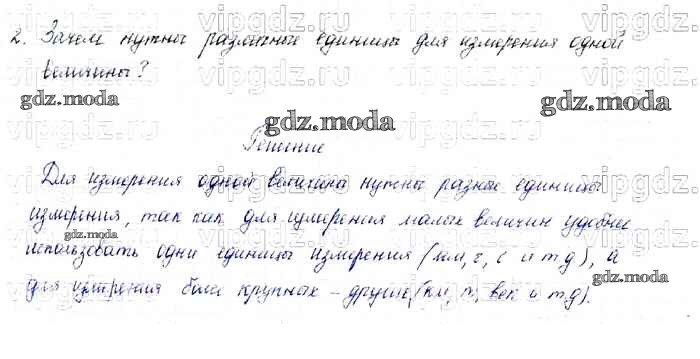 vipgdz.ru vipgdz.ru vipgdz.ru vipgdz
2. Зачем нужны различные единицы для измерения одной
величины?
gdz.moda
gdz.moda
gdz.moda
vipgdz.ru vipgdz.ru vipgdz.ru vipgdz
Решение
Для измерения одной величины нужны разные единицы
измерения, так как для измерения малых величин удобнее
gdz.moda
использовать одни единицы измерения (мм, г, с и т.д), а
gdz.moda
для измерения более крупных – другие (км, т, век и т.д).
gdz.moda